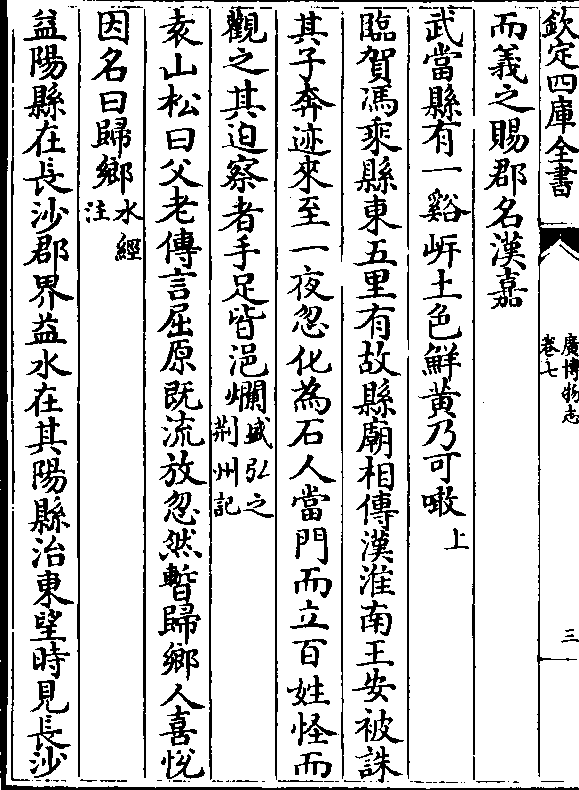 欽定四庫全書
廣博物志
卷七
三
而義之賜郡名漢嘉
武當縣有一谿岍土色鮮黃乃可噉上
臨賀馮乘縣東五里有故縣廟相傳漢淮南王安被誅
其子奔迹來至一夜忽化為石人當門而立百姓怪而
觀之其迫察者手足皆浥爛盛弘之荆州記
袁山松曰父老傳言屈原既流放忽然暫歸鄉人喜悅
因名曰歸鄉水經注
益陽縣在長沙郡界益水在其陽縣治東望時見長沙